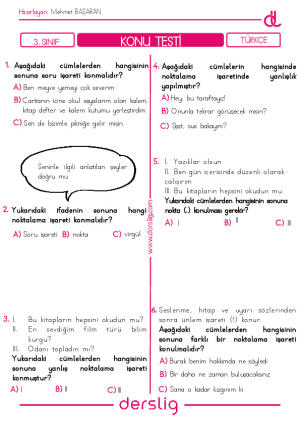 Hazırlayan: Mehmet BAŞARAN
3. SINIF
KONU TESTİ
TÜRKÇE
1. Aşağıdaki cümlelerden hangisinin
sonuna soru işareti konmalıdır?
A) Ben meyve yemeyi çok severim
B) Çantanın içine okul eşyalarım olan kalem,
kitap defter ve kalem kutumu yerleştirdim
C) Sen de bizimle pikniğe gelir misin
Seninle ilgili anlatılan şeyler
doğru mu
2. Yukarıdaki ifadenin sonuna hangi
noktalama işareti konmalıdır?
A) Soru işareti B) nokta C) virgül
3. I. Bu kitapların hepsini okudun mu?
II. En sevdiğim film türü bilim
kurgu?
III. Odanı topladın mı?
Yukarıdaki cümlelerden hangisinin
sonuna yanlış noktalama işareti
konmuştur?
A) I B) II C) III
4. Aşağıdaki cümlelerin hangisinde
noktalama işaretinde yanlışlık
yapılmıştır?
A) Hey, bu taraftayız!
B) Onunla tekrar görüşecek misin?
C) Şşşt, sus bakayım?
5. I. Yazıklar olsun
II. Ben gün içerisinde düzenli olarak
çalışırım
III. Bu kitapların hepsini okudun mu
Yukarıdaki cümlelerden hangisinin sonuna
nokta (.) konulması gerekir?
A) I B) II C) III
6. Seslenme, hitap ve uyarı sözlerinden
sonra ünlem işareti (!) konur.
Aşağıdaki cümlelerden hangisinin
sonuna farklı bir noktalama işareti
konulmalıdır?
A) Bırak benim hakkımda ne söyledi
B) Bir daha ne zaman buluşacaksınız
C) Sana o kadar kızgınım ki
www.derslig.com
derslig